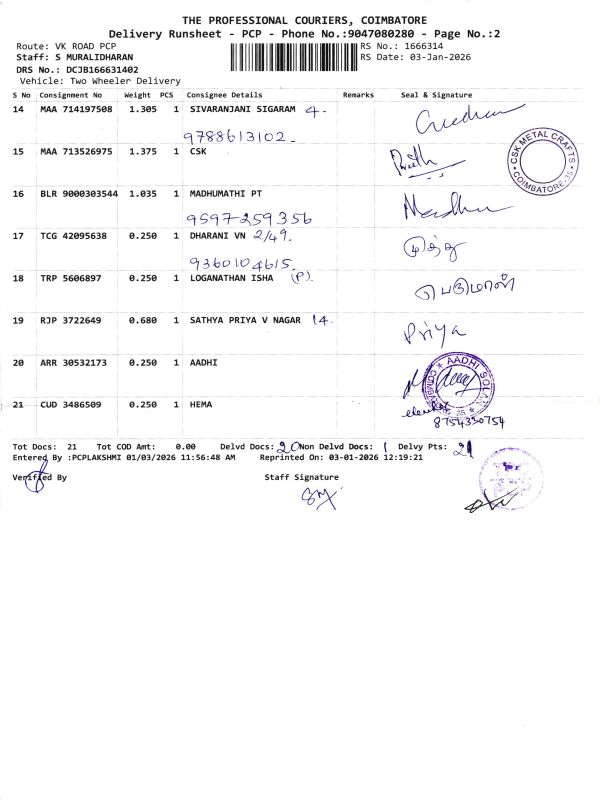 THE PROFESSIONAL COURIERS, COIMBATORE
Delivery Runsheet - PCP - Phone No.:9047080280 - Page No.:2
Route: VK ROAD PCP
RS No.: 1666314
Staff: S MURALIDHARAN
RS Date: 03-Jan-2026
DRS No.: DCJB166631402
Vehicle: Two Wheeler Delivery
S No Consignment No Weight PCS Consignee Details Remarks Seal & Signature
14 MAA 714197508 1.305 1 SIVARANJANI SIGARAM 4.
9788613102
15 MAA 713526975 1.375 1 CSK
CSK METAL CRAFTS COIMBATORE-35
16 BLR 9000303544 1.035 1 MADHUMATHI PT Madhu
9597259356
17 TCG 42095638 0.250 1 DHARANI VN 2/49.
9360104615
18 TRP 5606897 0.250 1 LOGANATHAN ISHA (P) பெருமாள்
19 RJP 3722649 0.680 1 SATHYA PRIYA V NAGAR 14. Priya
20 ARR 30532173 0.250 1 AADHI
AADHI SOLAR
21 CUD 3486509 0.250 1 HEMA
8754330754
Tot Docs: 21 Tot COD Amt: 0.00 Delvd Docs: 20 Non Delvd Docs: 1 Delvy Pts: 21
Entered By :PCPLAKSHMI 01/03/2026 11:56:48 AM Reprinted On: 03-01-2026 12:19:21
Verified By Staff Signature